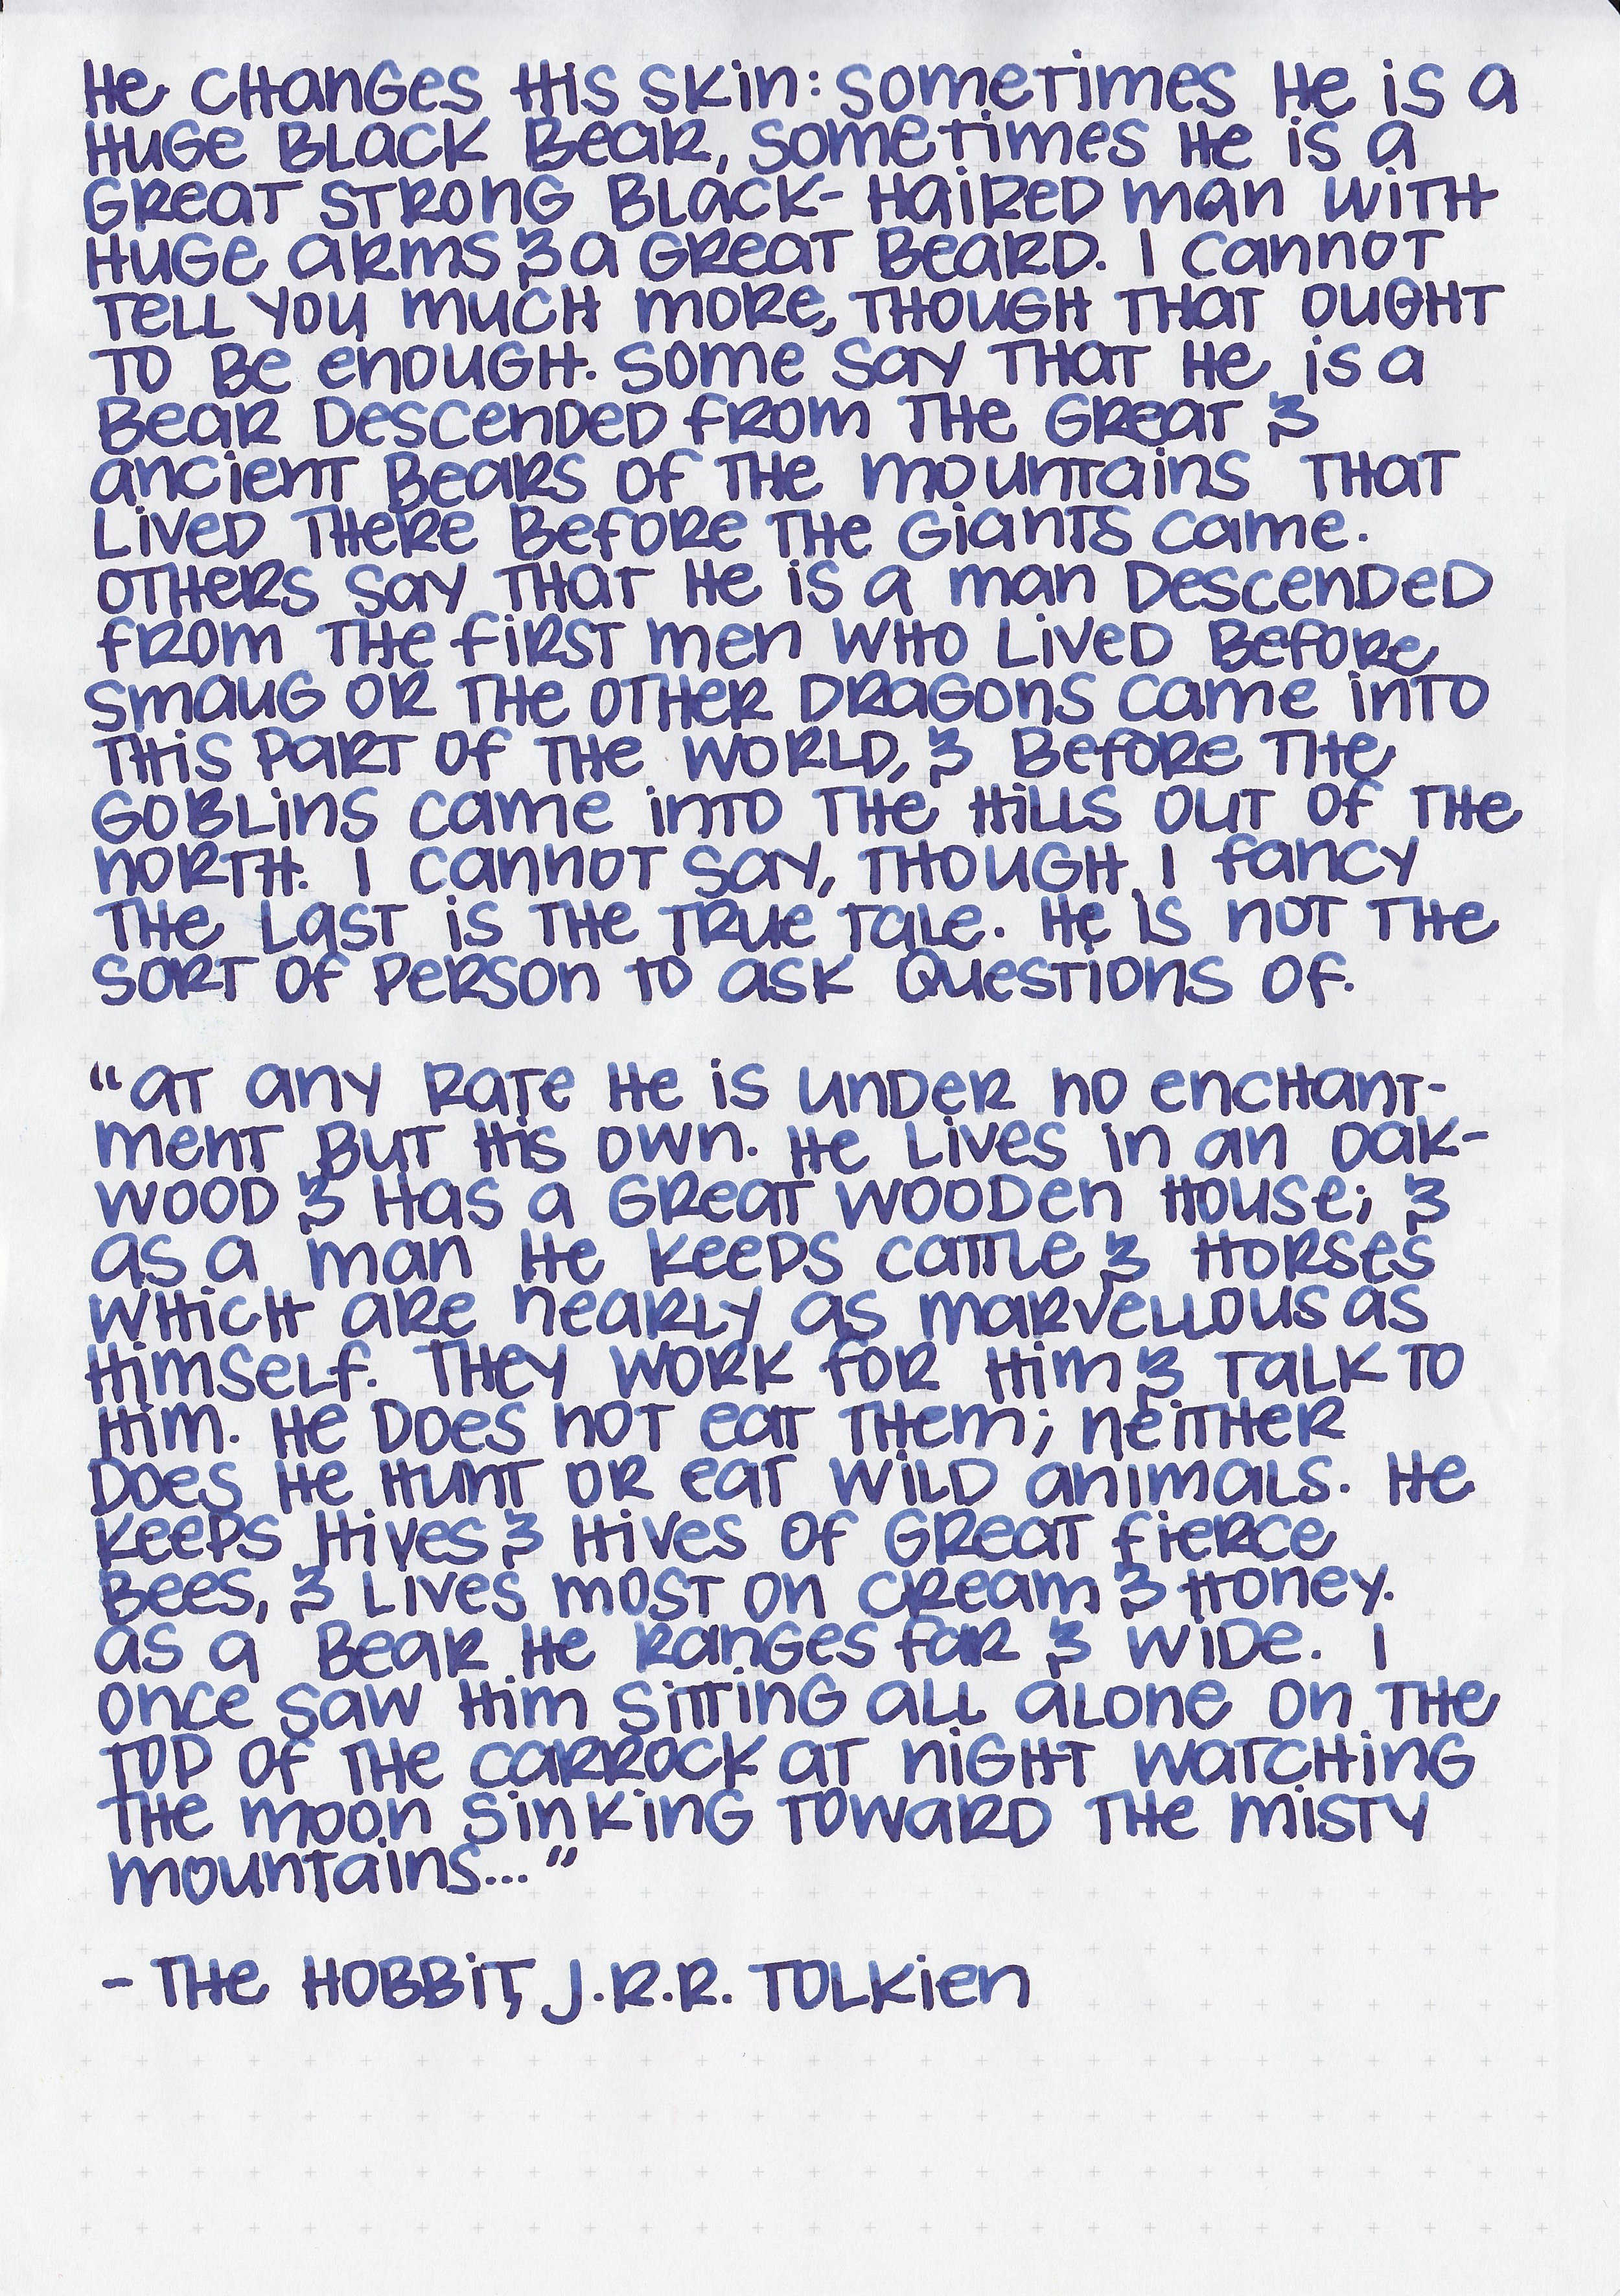 He changes his skin: sometimes he is a
huge black bear, sometimes he is a
great strong black-haired man with
huge arms & a great beard. I cannot
tell you much more, though that ought
to be enough. Some say that he is a
bear descended from the great &
ancient bears of the mountains that
lived there before the giants came.
Others say that he is a man descended
from the first men who lived before
Smaug or the other dragons came into
this part of the world, & before the
goblins came into the hills out of the
north. I cannot say, though I fancy
the last is the true tale. He is not the
sort of person to ask questions of.
“At any rate he is under no enchant-
ment but his own. He lives in an oak-
wood & has a great wooden house; &
as a man he keeps cattle & horses
which are nearly as marvellous as
himself. They work for him & talk to
him. He does not eat them; neither
does he hunt or eat wild animals. He
keeps hives & hives of great fierce
bees, & lives most on cream & honey.
As a bear he ranges far & wide. I
once saw him sitting all alone on the
top of the Carrock at night watching
the moon sinking toward the Misty
Mountains...”
- The Hobbit, J.R.R. Tolkien